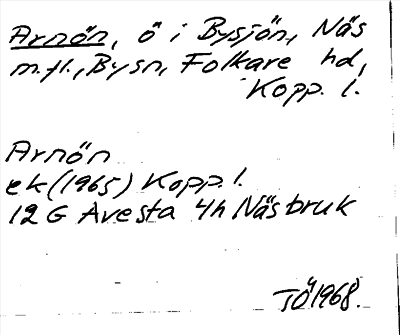 Arnön, ö i Bysjön, Näs
m.fl., Bysn, Folkare hd,
Kopp. l.
Arnön
ek (1965) Kopp. l.
12 G Avesta 4h Näsbruk
TÖ 1968.